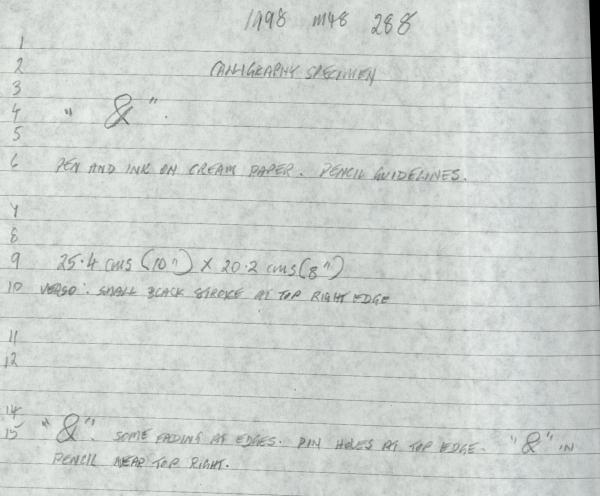 1998 M48 288
1
2 CALLIGRAPHY SPECIMEN
3
4 " & ".
5
6 PEN AND INK ON CREAM PAPER. PENCIL GUIDELINES.
7
8
9 25.4 cms (10") X 20.2 cms (8")
10 VERSO: SMALL BLACK STROKE AT TOP RIGHT EDGE
11
12
14
15 "&". SOME FADING AT EDGES. PIN HOLES AT TOP EDGE. "&" IN
PENCIL NEAR TOP RIGHT.